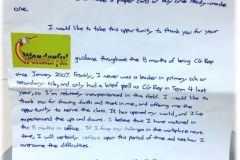 made in paper card or buy one ready-made
one.
I would like to take this opportunity to thank you for your
Wonderful
guidance throughout the 8 months of being CG Rep
since January 2007. Frankly, I never was a leader in primary sch or
secondary sch, and only had a brief spell as CG Rep in Term 4 last
year, so I'm relatively inexperienced in this field. I would like to
thank you for having faith and trust in me, and offering me the
opportunity to serve the class. It has opened my world, and I've
experienced the up and downs. I believe that I have matured in
the 8 months in office. If I face any challenges in the workplace next
time, I will certainly reflect upon this period of time and see how I
overcame the difficulties.